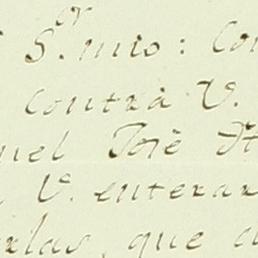 S.or mio: Con
contra V.
uel José
V. enterar
rlas, que